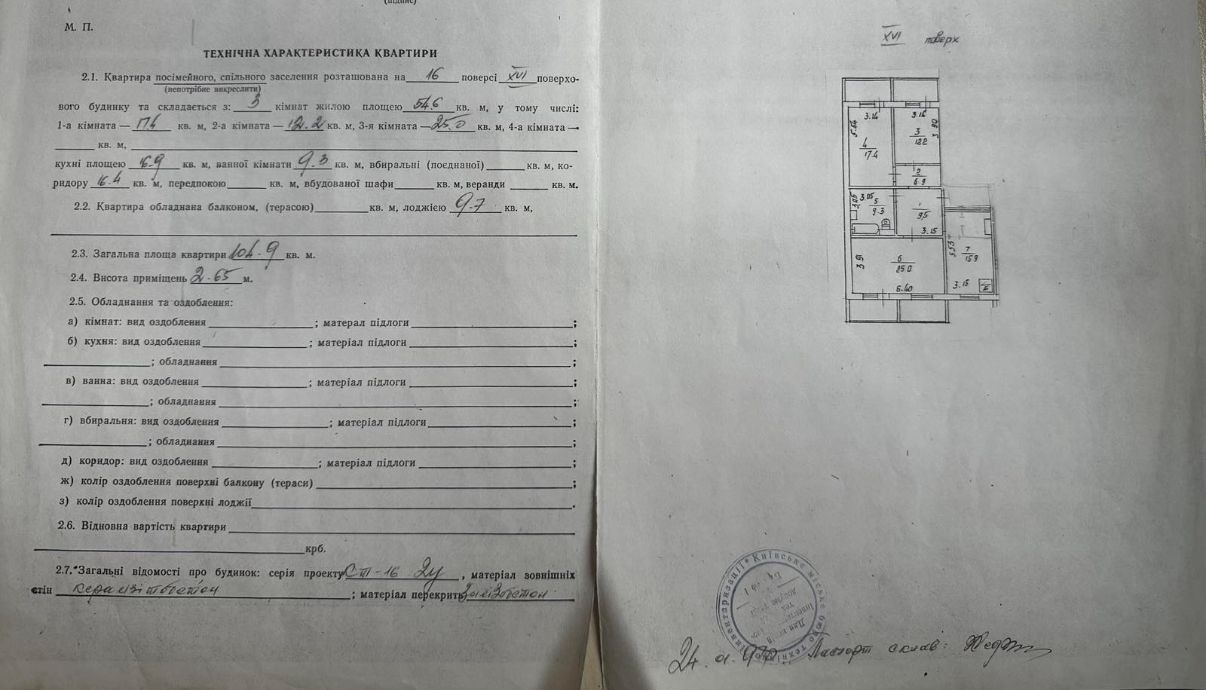 (підпис)
М. П.
ТЕХНІЧНА ХАРАКТЕРИСТИКА КВАРТИРИ
2.1. Квартира посімейного, спільного заселення розташована на 16 поверсі XVI поверхо-
(непотрібне викреслити)
вого будинку та складається з: 3 кімнат жилою площею 54.6 кв. м, у тому числі:
1-а кімната — 17.4 кв. м, 2-а кімната — 12.2 кв. м, 3-я кімната — 25.0 кв. м, 4-а кімната —
кв. м,
кухні площею кв. м, ванної кімнати 9.3 кв. м, вбиральні (поєднаної) кв. м, ко-
ридору 16.4 кв. м, передпокою кв. м, вбудованої шафи кв. м, веранди кв. м.
2.2. Квартира обладнана балконом, (терасою) кв. м, лоджією 9.7 кв. м,
2.3. Загальна площа квартири 104.9 кв. м.
2.4. Висота приміщень 2.65 м.
2.5. Обладнання та оздоблення:
а) кімнат: вид оздоблення ; матерал підлоги ;
б) кухня: вид оздоблення ; матеріал підлоги ;
; обладнання ;
в) ванна: вид оздоблення ; матеріал підлоги ;
; обладнання ;
г) вбиральня: вид оздоблення ; матеріал підлоги ;
; обладнання ;
д) коридор: вид оздоблення ; матеріал підлоги ;
ж) колір оздоблення поверхні балкону (тераси) ;
з) колір оздоблення поверхні лоджії .
2.6. Відновна вартість квартири
крб.
2.7. Загальні відомості про будинок: серія проекту , матеріал зовнішніх
стін керамзітбетон ; матеріал перекрить залізобетон
XVI поверх
3.16
3.16
5.54
4
17.4
3
12.2
3.90
2
6.9
3.05
5
9.3
1
9.5
3.15
3.91
6
25.0
6.40
5.53
7
15.9
3.15
Київське міське бюро технічної інвентаризації
Паспорт склав: